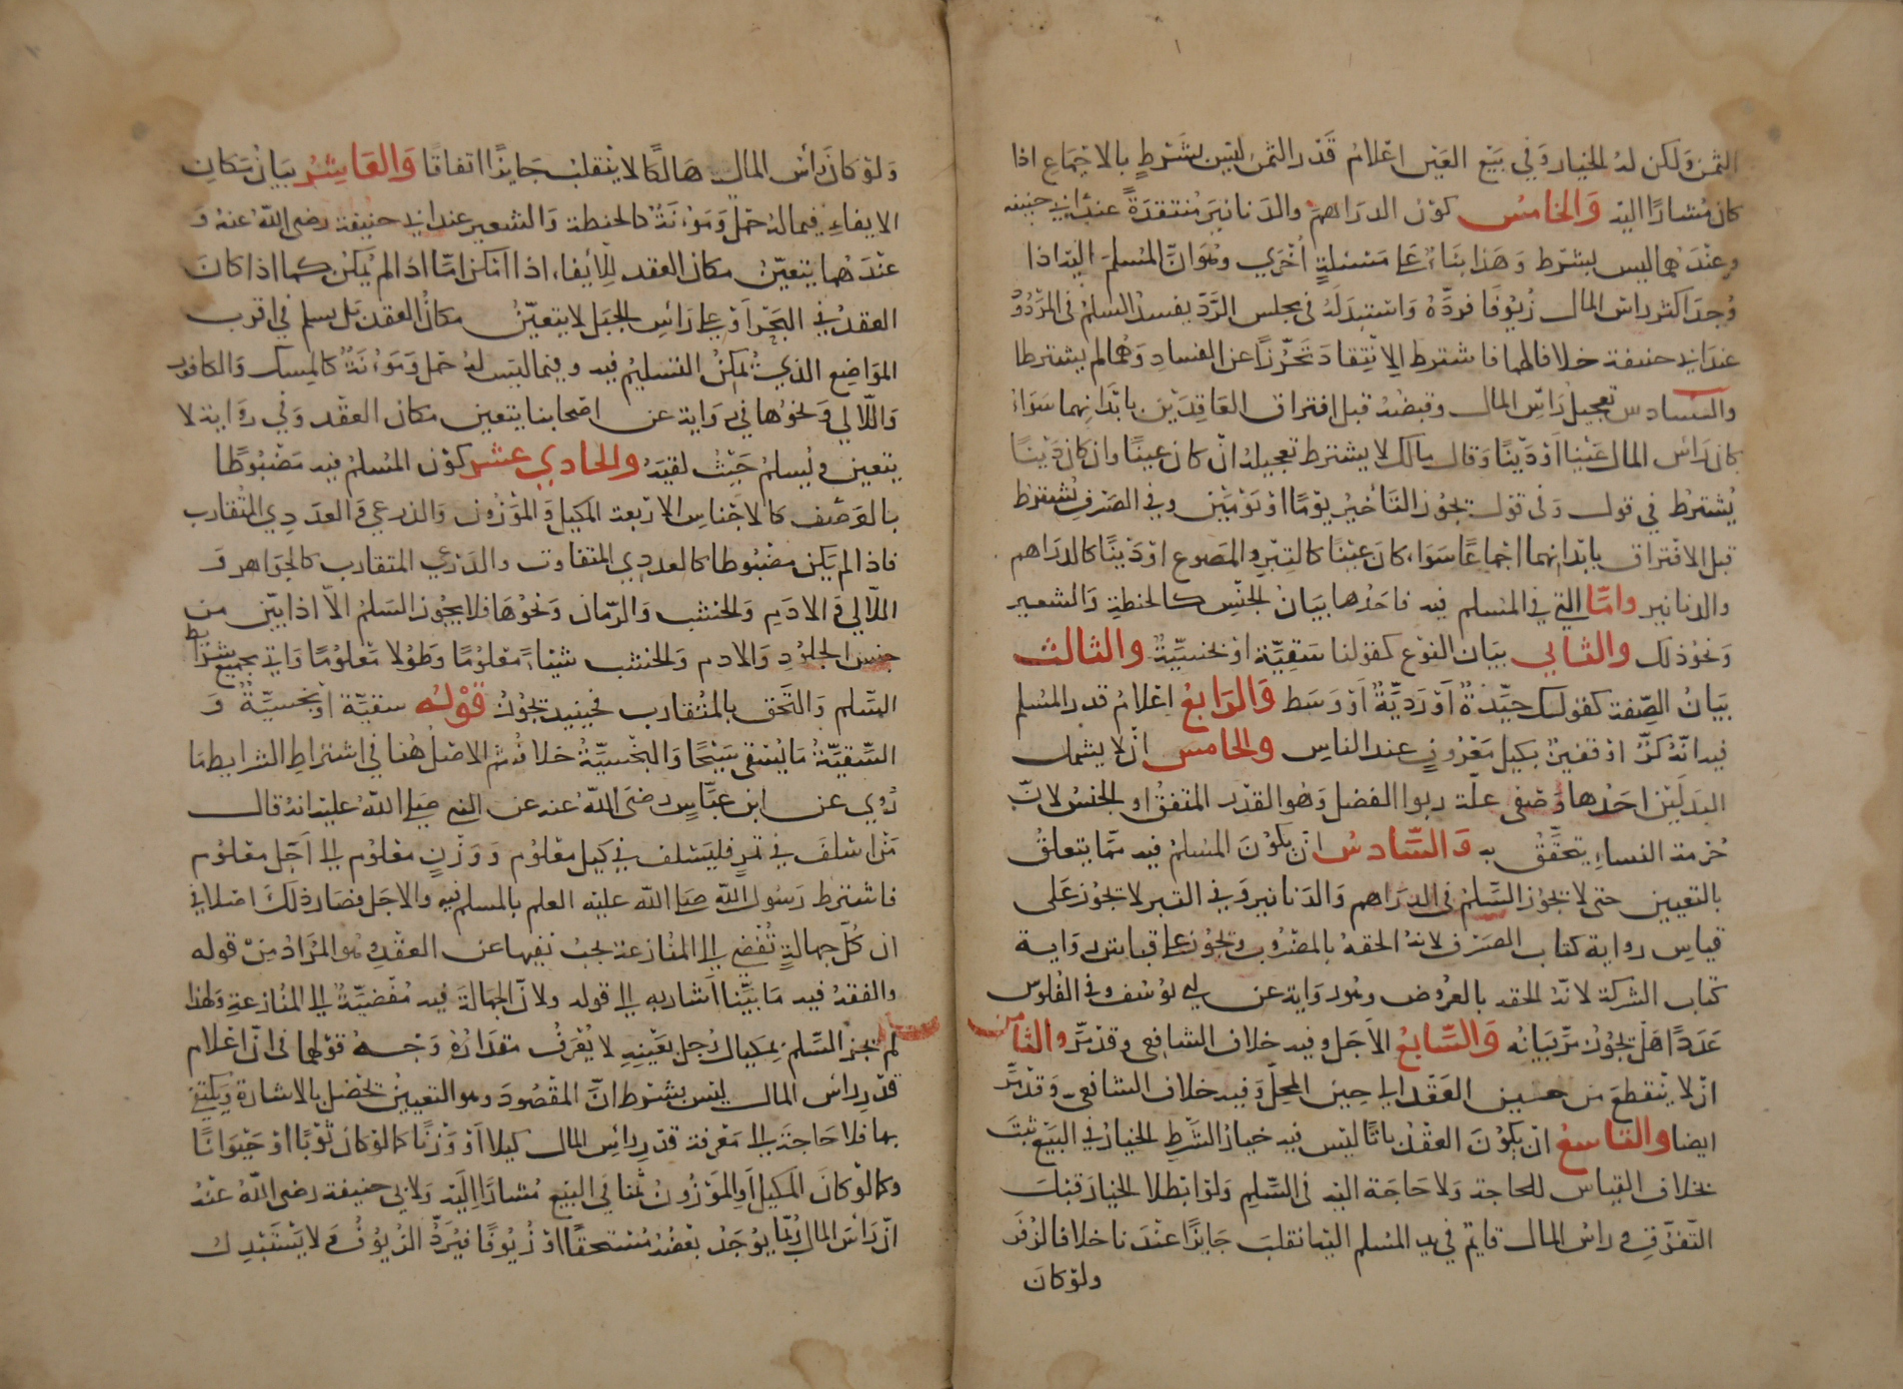 الثمن ولكن له الخيار وفي بيع العين اعلام قدر الثمن ليس بشرط بالاجماع اذا
كان مشارا اليه والخامس كون الدراهم والدنانير منتقدة عند ابي حنيفه
وعندهما ليس بشرط وهذا بناء على مسئلة اخري وهو ان المسلم اليه اذا
وجد اكثر راس المال زيوفا فرده واستبدله في مجلس الرد يفسد السلم في المردود
عند ابي حنيفة خلافا لهما فاشترط الانتقاد تحرزا عن الفساد وهما لم يشترطا
والسادس تعجيل راس المال وقبضه قبل افتراق العاقدين بابدانهما سواء
كان راس المال عينا او دينا وقال مالك لا يشترط تعجيله ان كان عينا وان كان دينا
يشترط في قول وفي قول يجوز التأخير يوما او يومين وفي الصرف يشترط
قبل الافتراق بابدانهما اجماعا سواء كان عينا كالتبر والمصوغ او دينا كالدراهم
والدنانير واما التي في المسلم فيه فاحدها بيان الجنس كالحنطة والشعير
ونحو ذلك والثاني بيان النوع كقولنا سقية او بخسية والثالث
بيان الصفة كقولك جيدة او ردية او وسط والرابع اعلام قدر المسلم
فيه انه كر او قفيز بكيل معروف عند الناس والخامس ان لا يشمل
البدلين احد وصفي علة ربوا الفضل وهو القدر المتفق او الجنس لان
حرمة النساء يتحقق به والسادس ان يكون المسلم فيه مما يتعلق
بالتعيين حتى لا يجوز السلم في الدراهم والدنانير وفي التبر لا تجوز على
قياس رواية كتاب الصرف لانه الحقه بالمضروب وتجوز على قياس رواية
كتاب الشركة لانه الحقه بالعروض وهو رواية عن ابي يوسف وفي الفلوس
عددا هل تجوز مر بيانه والسابع الاجل وفيه خلاف الشافعي وقد مر والثامن
ان لا ينقطع من حين العقد الي حين المحل وفيه خلاف الشافعي وقد مر
ايضا والتاسع ان يكون العقد باتا ليس فيه خيار الشرط الخيار في البيع ثبت
بخلاف القياس للحاجة ولا حاجة اليه في السلم ولو ابطلا الخيار قبل
التفرق و راس المال قايم في يد المسلم اليه انقلب جايزا عندنا خلافا لزفر
ولو كان
ولو كان راس المال هالكا لا ينقلب جايزا اتفاقا والعاشر بيان مكان
الايفاء فيما له حمل ومؤنة كالحنطة والشعير عند ابي حنيفة رضي الله عنه و
عندهما يتعين مكان العقد للايفاء اذا امكن اما اذا لم يمكن كما اذا كان
العقد في البحر او على راس الجبل لا يتعين مكان العقد بل يسلم في اقرب
المواضع الذي يمكن التسليم فيه وفيما ليس له حمل ومؤنة كالمسك والكافور
واللآلي ونحوها في رواية عن اصحابنا يتعين مكان العقد وفي رواية لا
يتعين ويسلم حيث لقيه والحادي عشر كون المسلم فيه مضبوطا
بالوصف كالاجناس الاربعة المكيل والموزون والذرعي والعددي المتقارب
فاذا لم يكن مضبوطا كالعددي المتفاوت والذرعي المتقارب كالجواهر و
اللآلي والاديم والخشب والرمان ونحوها فلا يجوز السلم الا اذا بين من
جنس الجلود والادم والخشب شيئا معلوما وطولا معلوما واتي بجميع شرايط
السلم والتحق بالمتقارب فحينيد يجوز قوله سقية او بخسية و
السقية ما يسقى سيحا والبخسية خلافه ثم الاصل هنا في اشتراط الشرايط ما
روي عن ابن عباس رضي الله عنه عن النبي صلى الله عليه انه قال
من اسلف في تمر فليسلف في كيل معلوم و وزن معلوم الى اجل معلوم
فاشترط رسول الله صلى الله عليه العلم بالمسلم فيه والاجل فصار ذلك اصلا في
ان كل جهالة تفضي الى المنازعة يجب نفيها عن العقد وهو المراد من قوله
والفقه فيه ما بينا اشار به الى قوله ولان الجهالة فيه مفضية الى المنازعة ولهذا
لم يجز السلم بمكيال رجل بعينه لا يعرف مقداره وجه قولهما في ان اعلام
قدر راس المال ليس بشرط ان المقصود وهو التعيين يحصل بالاشارة ويكتفي
بها فلا حاجة الى معرفة قدر راس المال كيلا او وزنا كما لو كان ثوبا او حيوانا
وكما لو كان المكيل او الموزون ثمنا في البيع مشارا اليه ولابي حنيفة رضي الله عنه
ان راس المال ربما يوجد بعضه مستحقا او زيوفا فيرد الزيوف ولا يستبدل